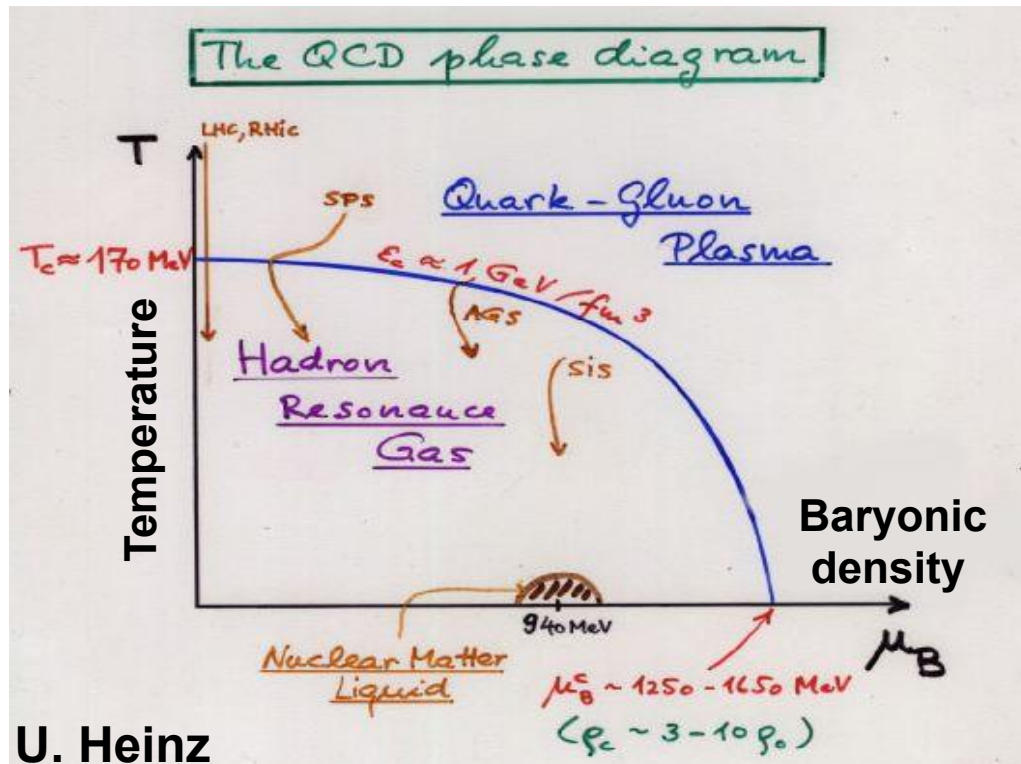 The QCD phase diagram
LHC, RHic
T
SPS
Quark - Gluon
Plasma
Tc ≈ 170 MeV
εc ≈ 1 GeV/fm³
AGS
Temperature
Hadron
Resonance
Gas
SiS
Baryonic
density
940 MeV
μB
Nuclear Matter
Liquid
μ_B^c ~ 1250 - 1650 MeV
(ρc ~ 3 - 10 ρ0)
U. Heinz